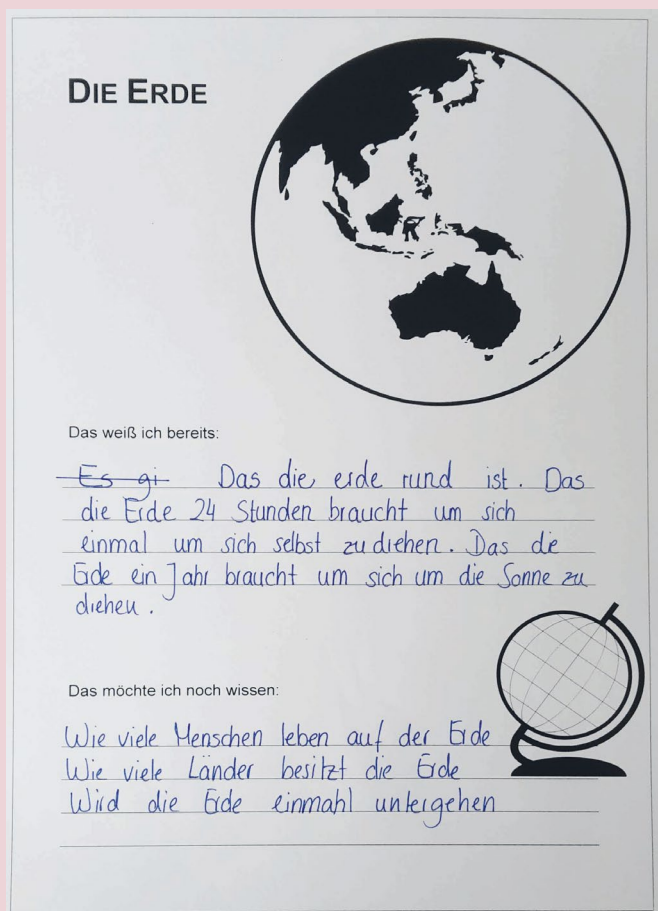 DIE ERDE
Das weiß ich bereits:
Es gi Das die erde rund ist. Das
die Erde 24 Stunden braucht um sich
einmal um sich selbst zu drehen. Das die
Erde ein Jahr braucht um sich um die Sonne zu
drehen.
Das möchte ich noch wissen:
Wie viele Menschen leben auf der Erde
Wie viele Länder besitzt die Erde
Wird die Erde einmahl untergehen